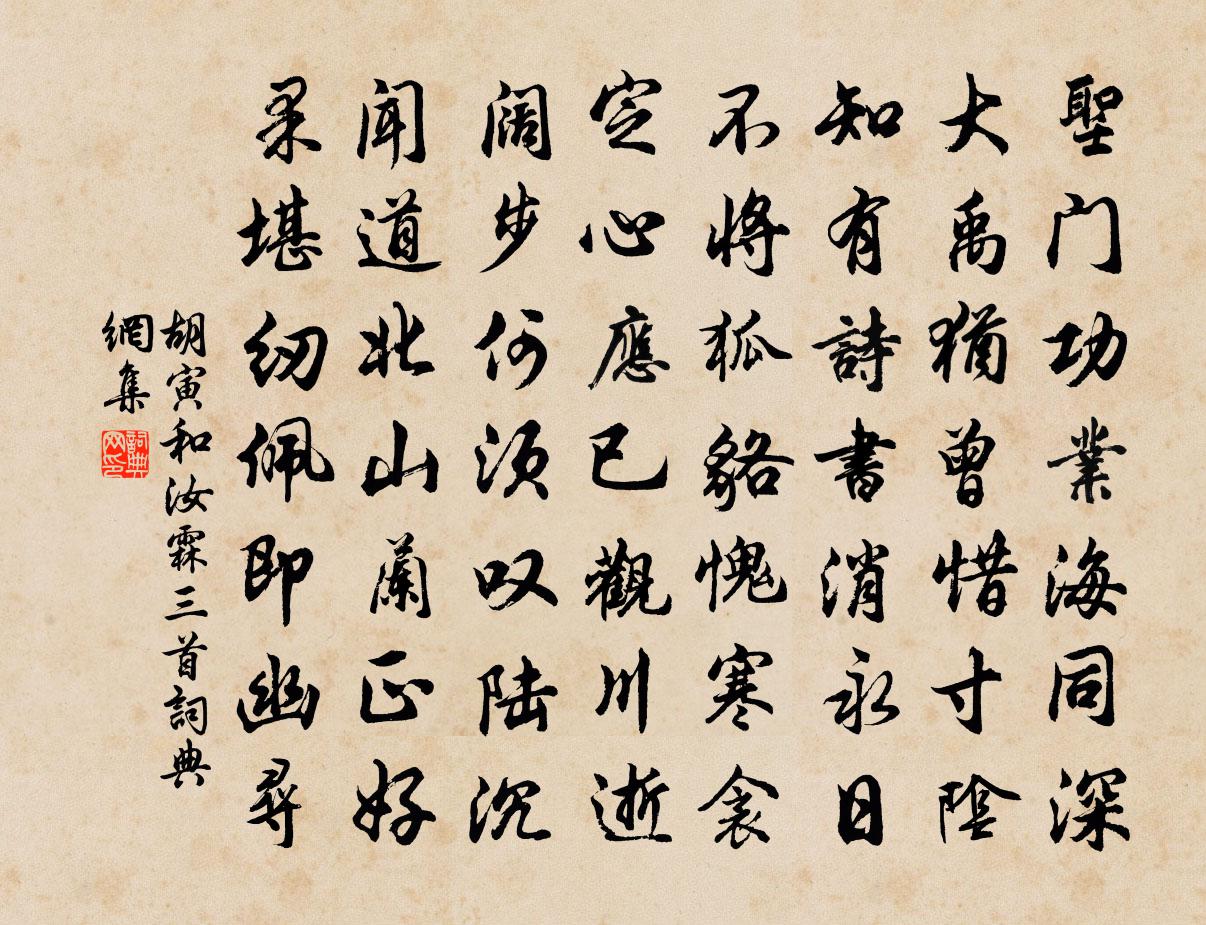 聖门功業海同深
大禹猶曾惜寸陰
知有詩書消永日
不將狐貉愧寒衾
定心應已觀川逝
阔步何须叹陆沉
闻道北山蘭正好
果堪纫佩即幽尋
胡寅和汝霖三首詞典
網集
詞典
网印